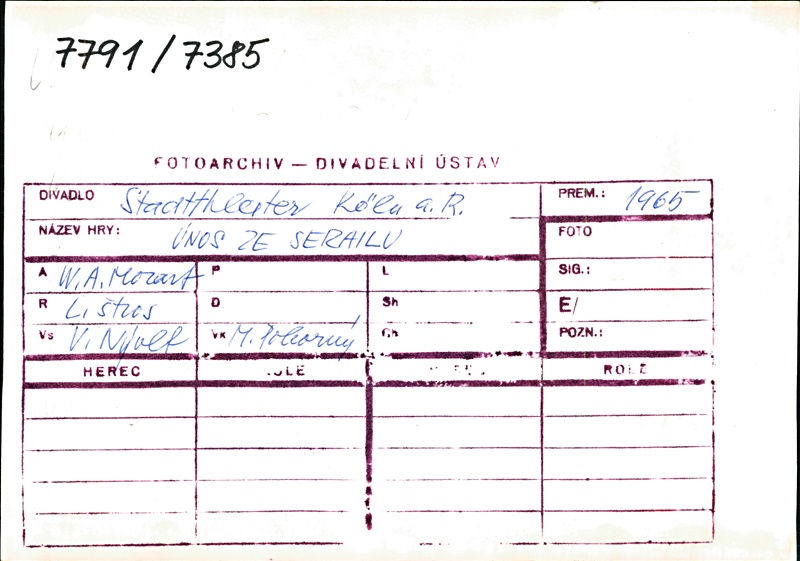 7791/7385
FOTOARCHIV — DIVADELNÍ ÚSTAV
DIVADLO Stadttheater Köln a. R. PREM.: 1965
NÁZEV HRY: ÚNOS ZE SERAILU FOTO
A W. A. Mozart P L SIG.:
R L. Štros D Sh E/
Vs V. Nývlt Vk M. Pokorný Ch POZN.:
HEREC ROLE HEREC ROLE